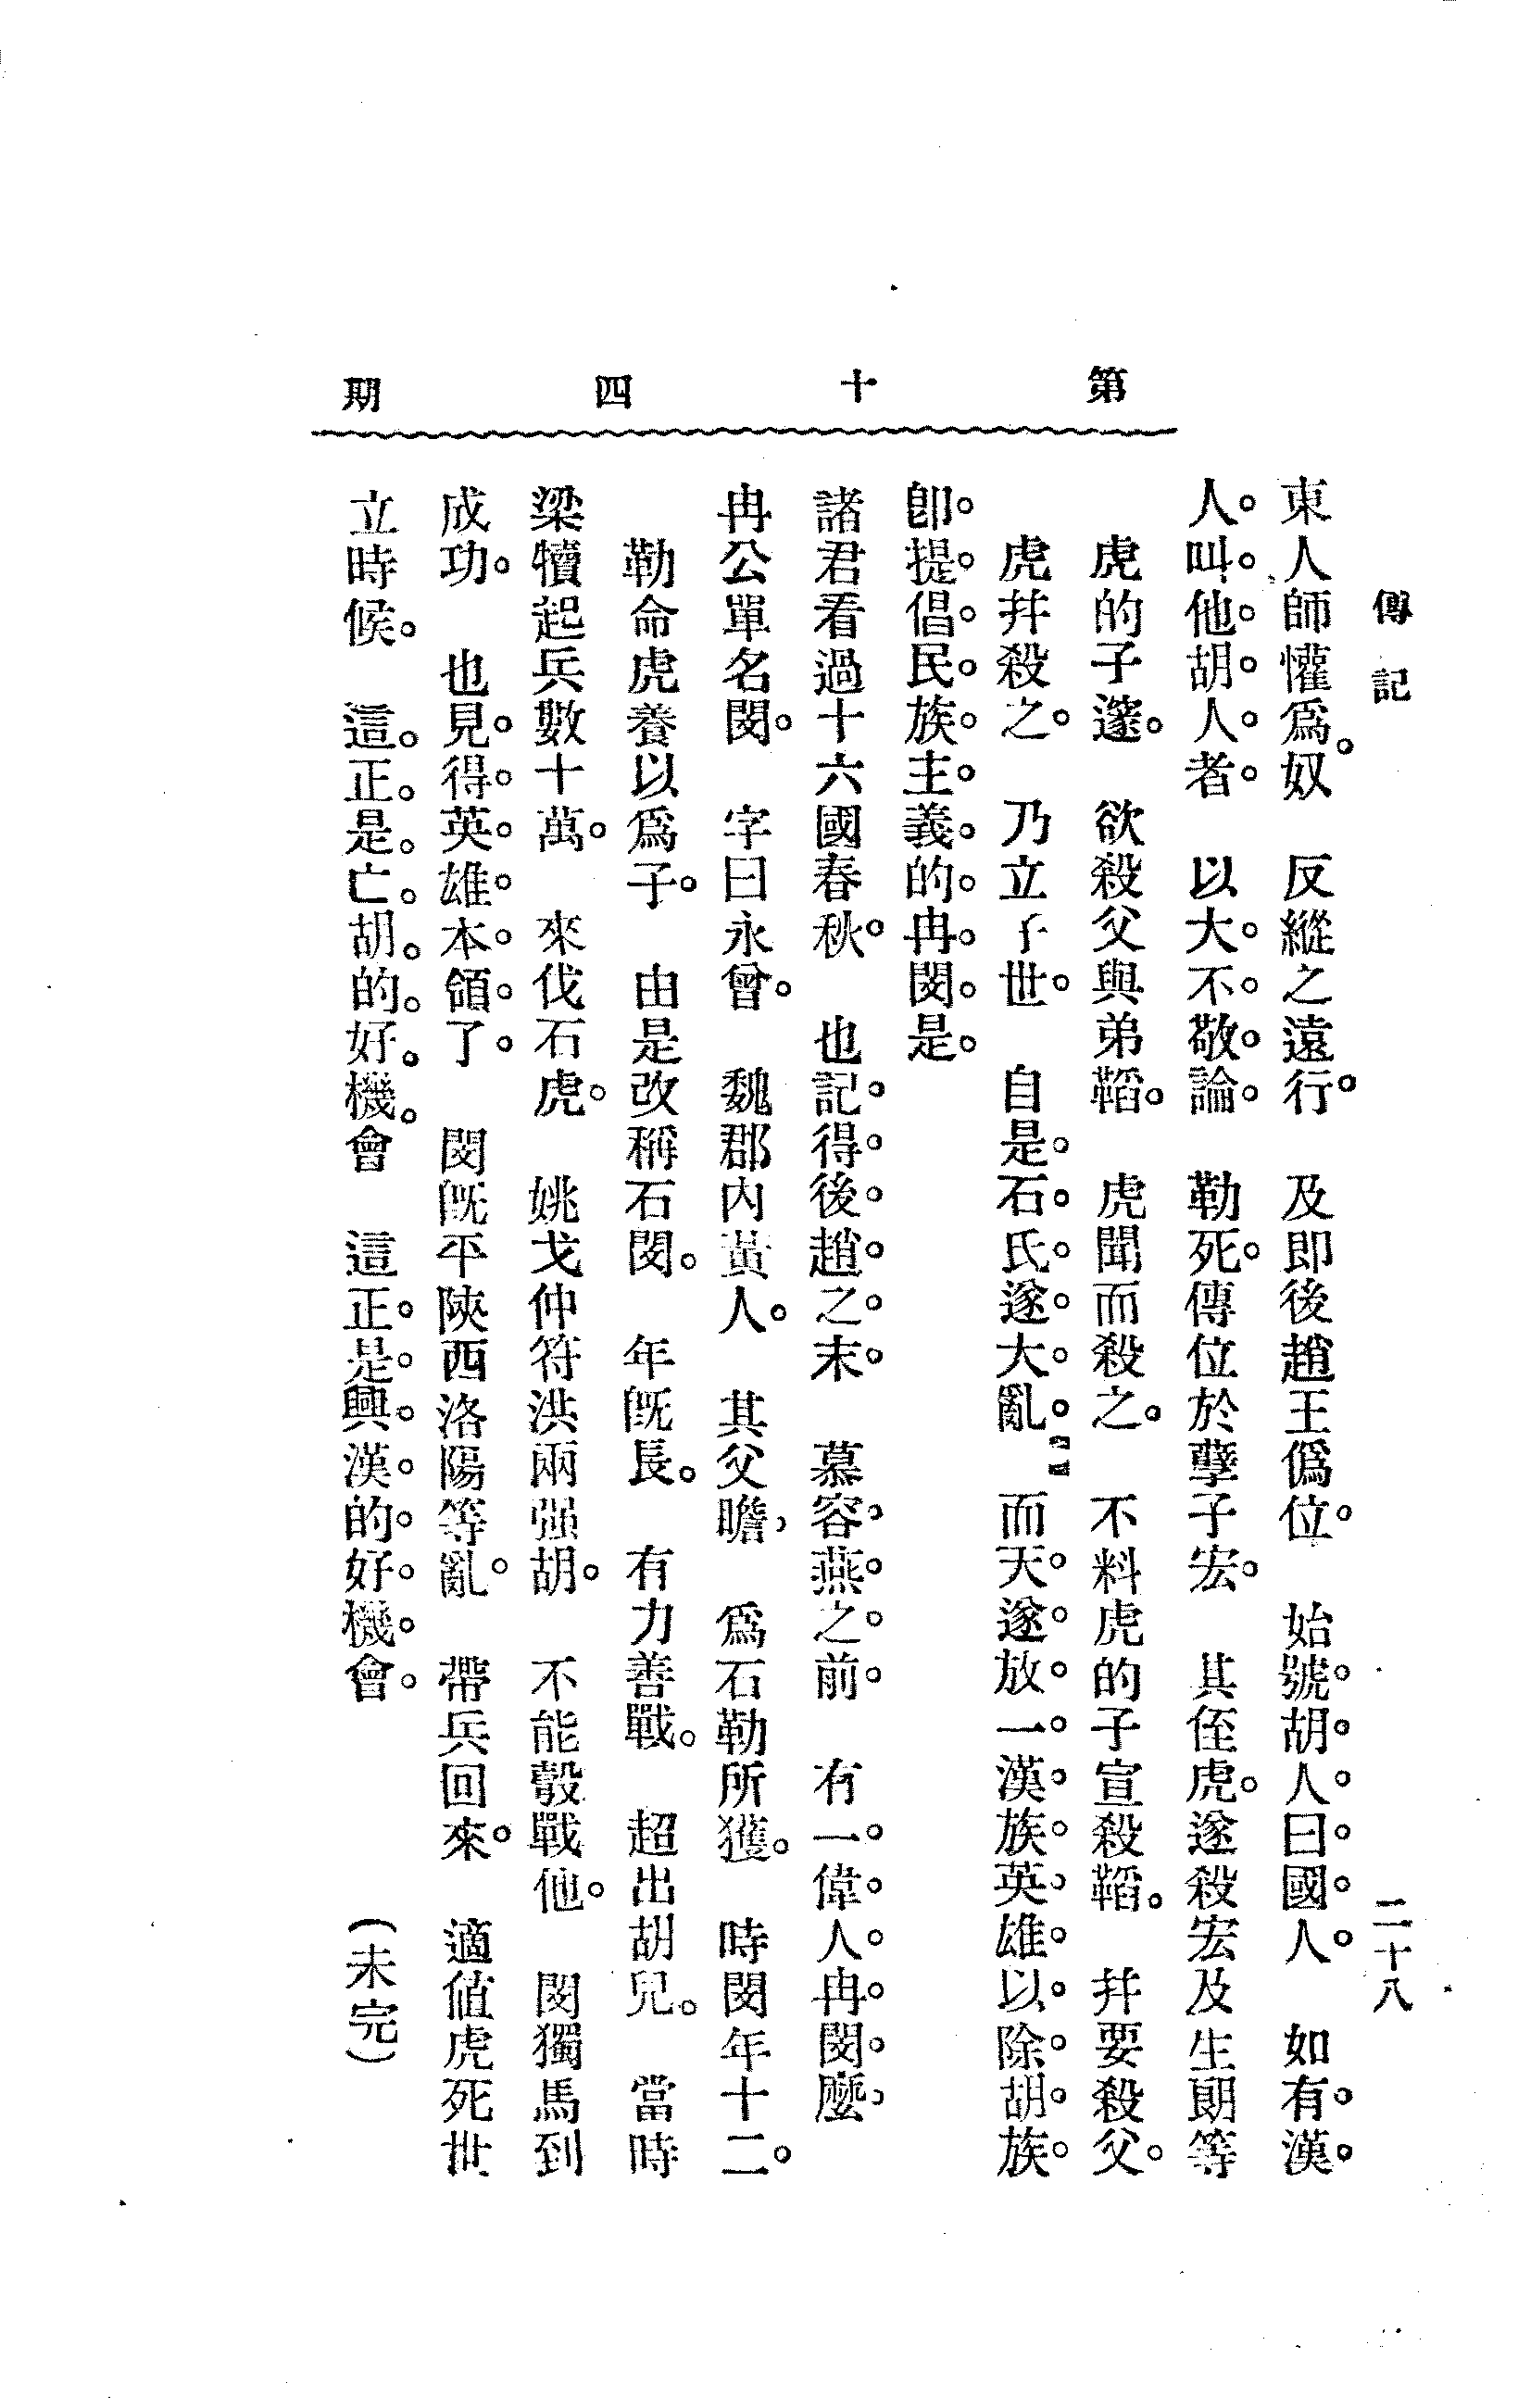 傳記
二十八
第十四期
東人師懽爲奴。　反縱之遠行。　及即後趙王僞位。　始號胡人曰國人。　如有漢
人叫他胡人者　以大不敬論。　勒死。傳位於孽子宏。　其侄虎。遂殺宏及生朗等
虎的子邃。　欲殺父與弟韜。　虎聞而殺之。　不料虎的子宣殺韜。　幷要殺父。
虎幷殺之。　乃立子世。　自是。石氏遂大亂。　而天遂放一漢族英雄以除胡族
卽提倡民族主義的冉閔是。
諸君看過十六國春秋。　也記得後趙之末。　慕容燕之前。　有一偉人冉閔麼、
冉公單名閔。　字曰永曾。　魏郡內黃人。　其父瞻、　爲石勒所獲。　時閔年十二。
勒命虎養以爲子。　由是改稱石閔。　年旣長。　有力善戰。　超出胡兒。　當時
梁犢起兵數十萬。　來伐石虎。　姚戈仲符洪兩强胡。　不能彀戰他。　閔獨馬到
成功。　也見得英雄本領了。　閔旣平陝西洛陽等亂。　帶兵回來。　適値虎死世
立時候。　這正是亡胡的好機會　這正是興漢的好機會。
（未完）